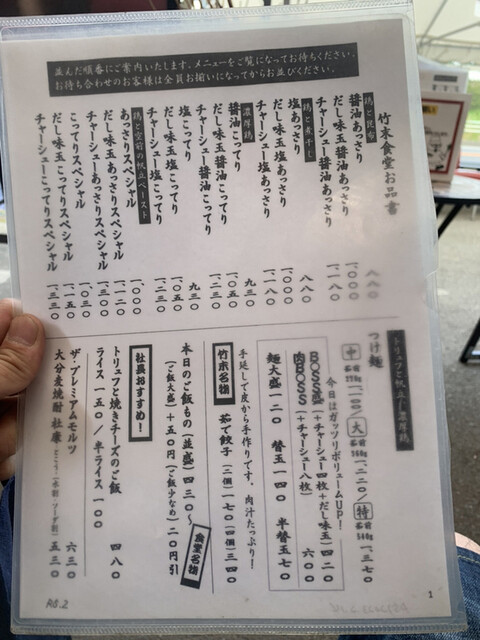 並んだ順番にご案内いたします。メニューをご覧になってお待ちください。
お待ち合わせのお客様は全員お揃いになってからお並びください。
竹末食堂お品書
鶏と昆布
醤油あっさり 八八〇
だし味玉醤油あっさり 一、〇〇〇
チャーシュー醤油あっさり 一、一八〇
鶏と煮干し
塩あっさり 八八〇
だし味玉塩あっさり 一、〇〇〇
チャーシュー塩あっさり 一、一八〇
濃厚鶏
醤油こってり 九三〇
だし味玉醤油こってり 一、〇五〇
チャーシュー醤油こってり 一、二三〇
塩こってり 九三〇
だし味玉塩こってり 一、〇五〇
チャーシュー塩こってり 一、二三〇
鶏と空前の帆立ペースト
あっさりスペシャル 一、〇〇〇
だし味玉あっさりスペシャル 一、一二〇
チャーシューあっさりスペシャル 一、三〇〇
こってりスペシャル 一、〇三〇
だし味玉こってりスペシャル 一、一五〇
チャーシューこってりスペシャル 一、三三〇
トリュフと帆立に濃厚鶏
つけ麺
中 茹前220g 一、一〇〇/大 茹前360g 一、二二〇/特 茹前540g 一、三七〇
今日はガッツリボリュームUP!
BOSS盛(+チャーシュー四枚+だし味玉) 四二〇
肉BOSS(+チャーシュー八枚) 六〇〇
麺大盛 一二〇 替玉 一四〇 半替玉 七〇
手延しで皮から手作りです。肉汁たっぷり!
竹末名物 茹で餃子(二個)一七〇(四個)三四〇
食堂名物
本日のご飯もの(並盛)四三〇〜
(ご飯大盛)+五〇円(ご飯少なめ)二〇円引
社長おすすめ!
トリュフと焼きチーズのご飯 四八〇
ライス 一五〇/半ライス 一〇〇
ザ・プレミアムモルツ 六三〇
大分麦焼酎 杜康 とこう!(水割・ソーダ割) 五三〇
R6.2
1